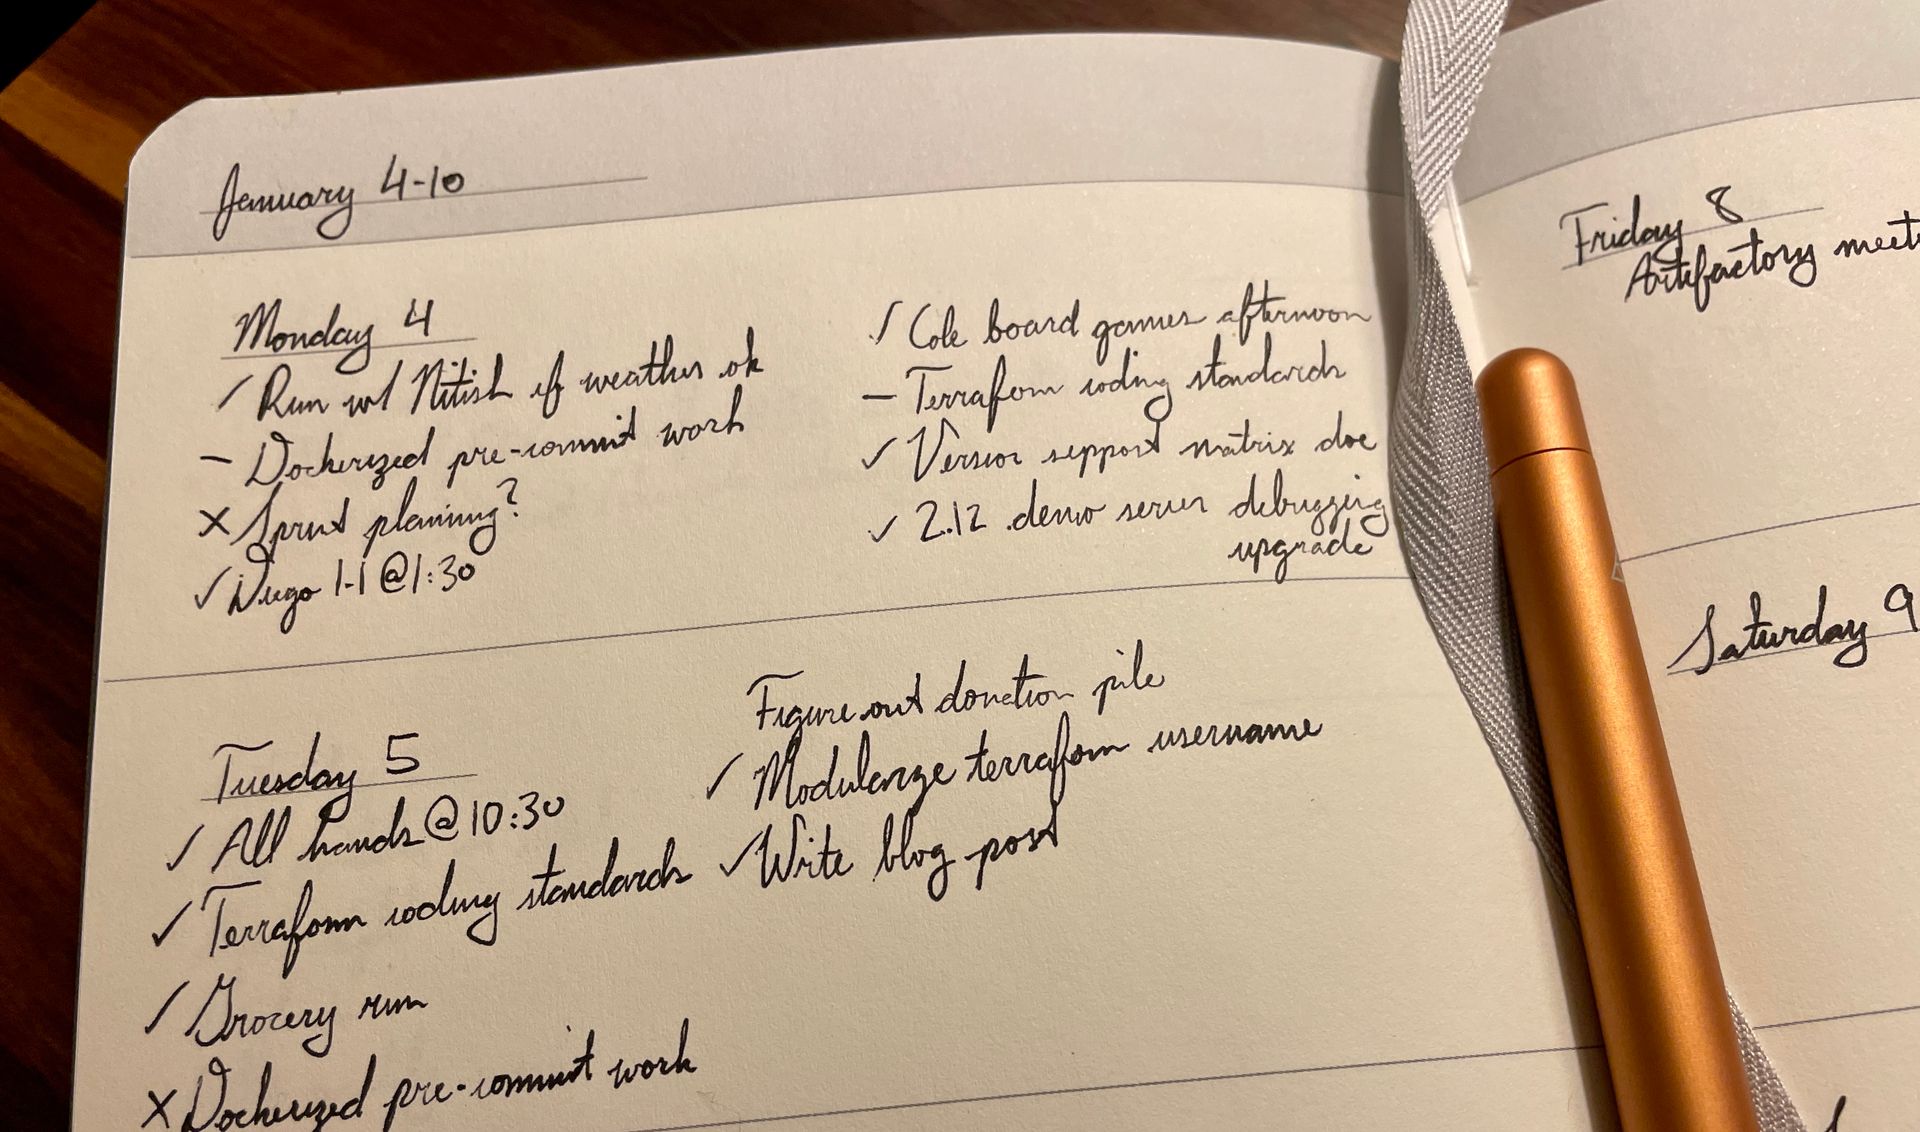 January 4-10
Monday 4
✓ Run w/ Nitish if weather ok
– Dockerized pre-commit work
× Sprint planning?
✓ 1-1 @ 1:30
✓ Cole board games afternoon
– Terraform coding standards
✓ Version support matrix doc
✓ 2.12 demo server debugging
upgrade
Tuesday 5
✓ All hands @ 10:30
✓ Terraform coding standards
✓ Grocery run
× Dockerized pre-commit work
Figure out donation pile
✓ Modularize terraform username
✓ Write blog post
Friday 8
Artifactory meet
Saturday 9